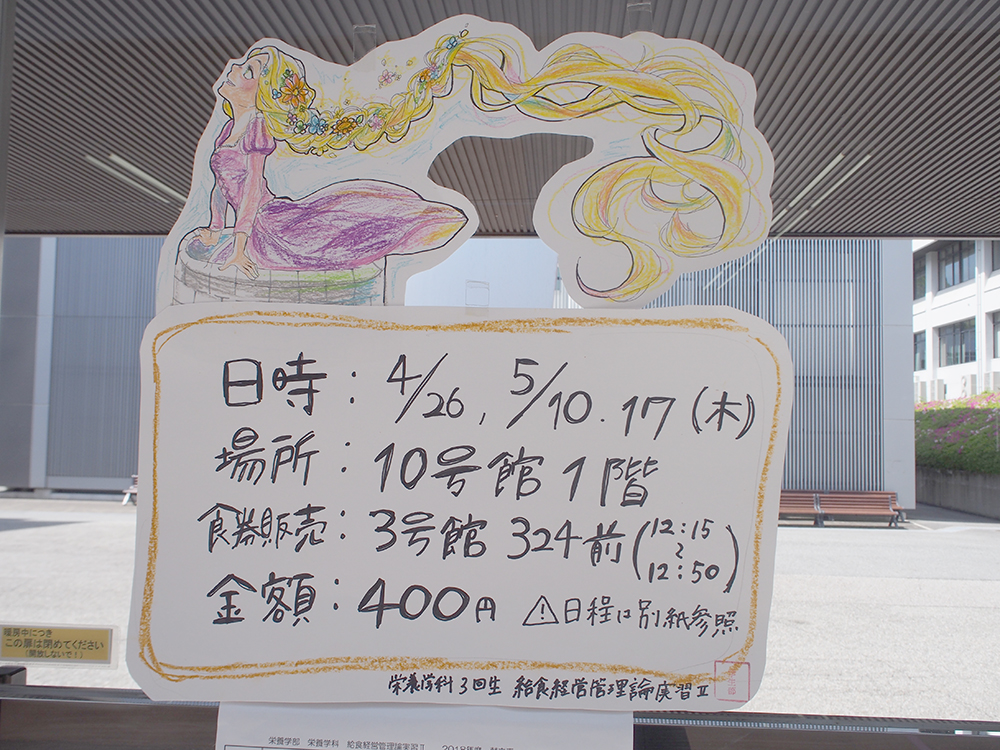 日時：4/26, 5/10.17(木)
場所：10号館 1階
食券販売：3号館 324前(12:15～12:50)
金額：400円 ⚠日程は別紙参照
栄養学科3回生 給食経営管理論実習Ⅱ
暖房中につき
この扉は閉めてください
(開放しないで!)
栄養学部 栄養学科 給食経営管理論実習Ⅱ 2018年度